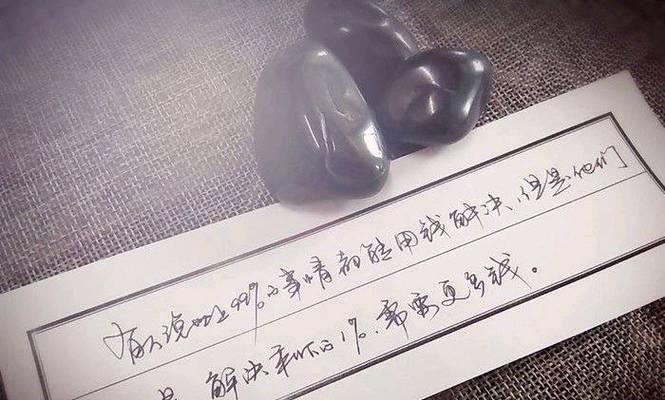 有人说世上99%的事情都能用钱解决、但是他们
是,解决剩下的1%,需要更多钱。